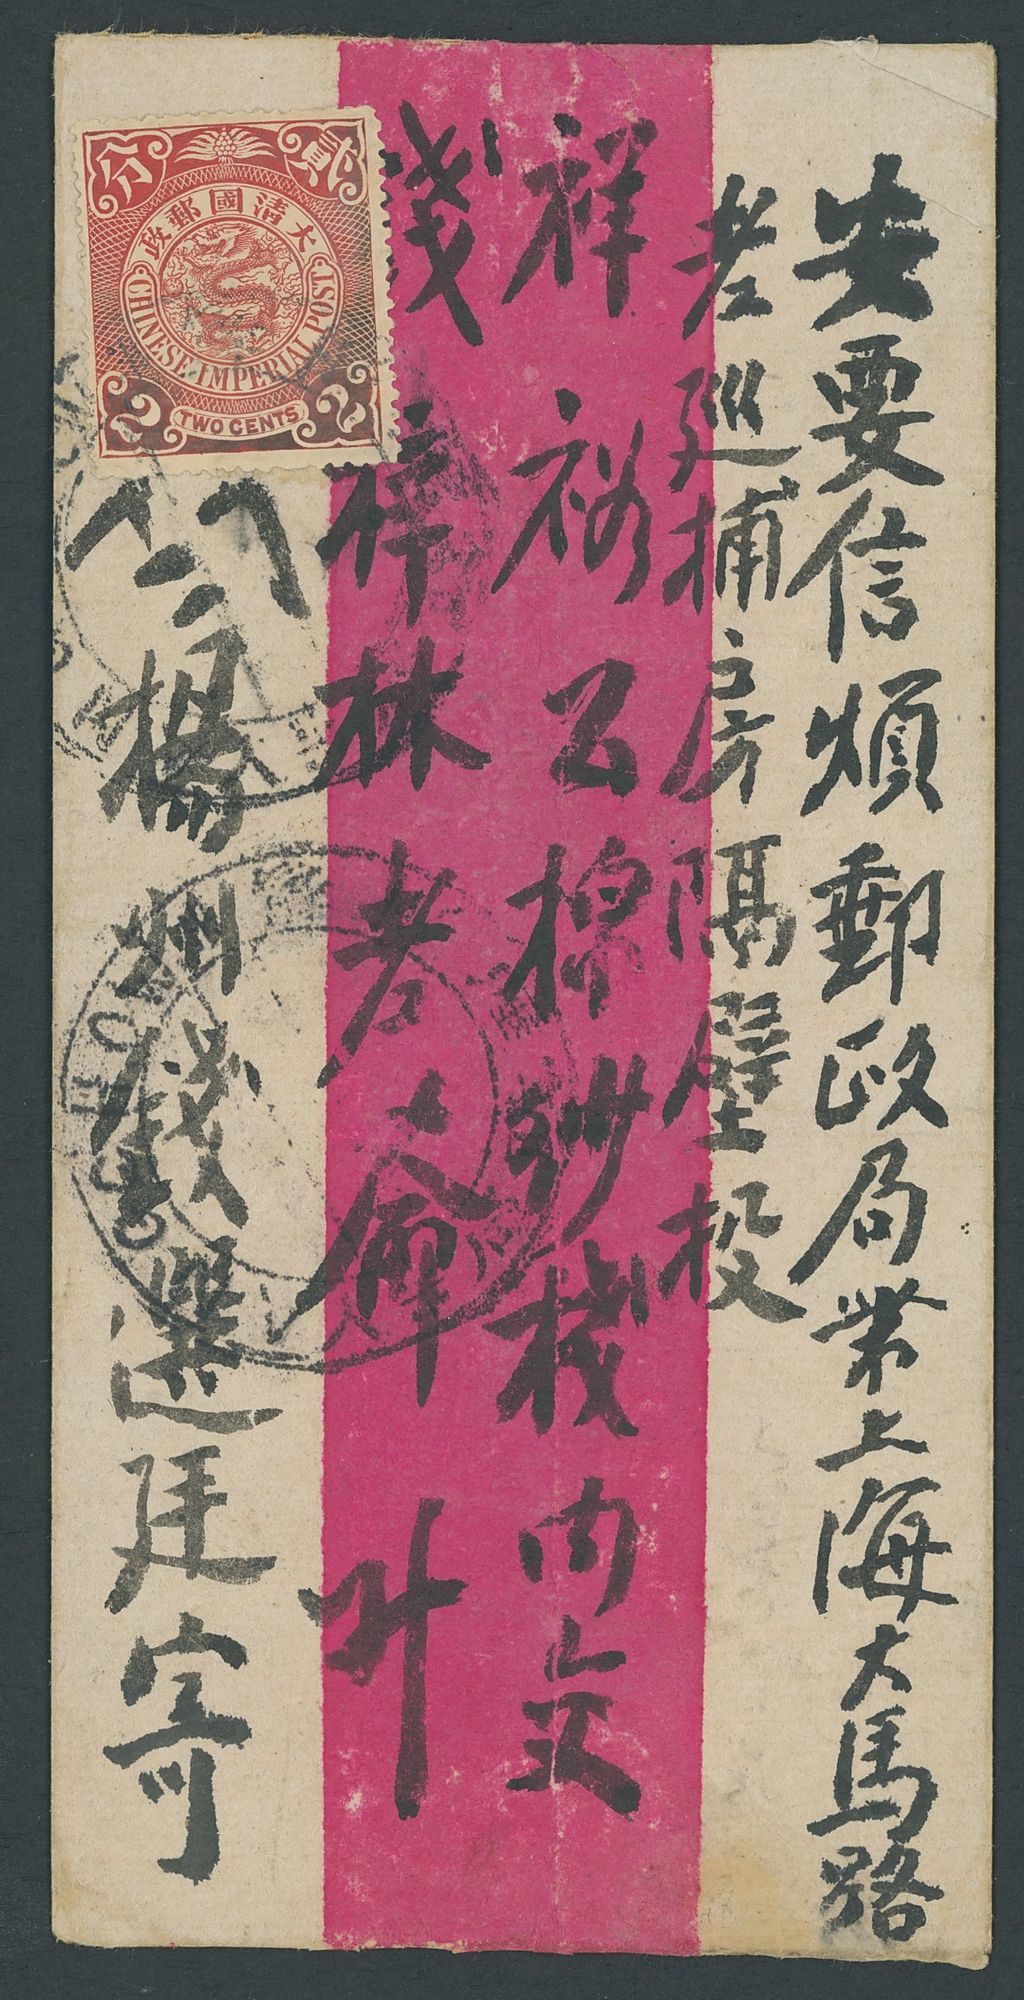 安要信煩郵政局帶上海大馬路
老巡捕房隔壁投
祥裕公棉紗棧內交
錢梓林老爺 升
楊州錢選廷寄
貳分
大清國郵政
CHINESE IMPERIAL POST
2 2
TWO CENTS